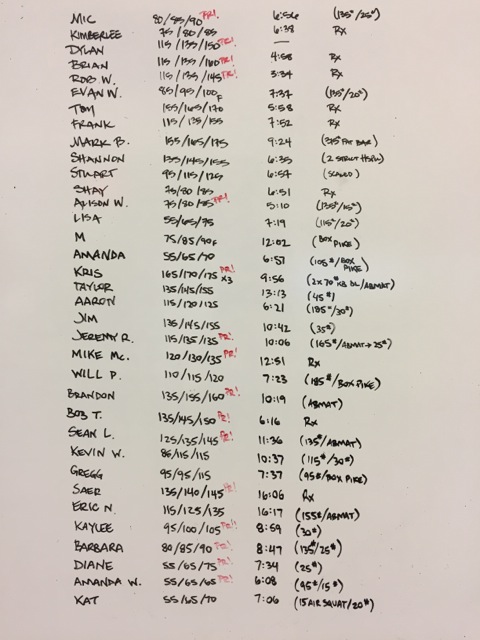 MIC 80/85/90 PR! 6:56 (135#/25#)
KIMBERLEE 75/80/85 6:38 Rx
DYLAN 115/135/150 PR! —
BRIAN 115/135/160 PR! 4:58 Rx
ROB W. 115/135/145 PR! 3:34 Rx
EVAN W. 85/95/100F 7:37 (135#/20#)
TOM 155/165/170 5:58 Rx
FRANK 115/135/155 7:52 Rx
MARK B. 155/165/175 9:24 (375 FAT BAR)
SHANNON 135/145/155 6:35 (2 STRICT HSPU)
STUART 95/115/125 6:54 (SCALED)
SHAY 75/80/85 6:51 Rx
ALISON W. 75/80/85 PR! 5:10 (135#/15#)
LISA 55/65/75 7:19 (115#/20#)
M 75/85/90F 12:02 (BOX PIKE)
AMANDA 55/65/70 6:57 (105#/BOX PIKE)
KRIS 165/170/175 PR! x3 9:56 (2x70#KB DL/ABMAT)
TAYLOR 135/145/155 13:13 (45#)
AARON 115/120/125 6:21 (185#/30#)
JIM 135/145/155 10:42 (35#)
JEREMY R. 115/135/135 PR! 10:06 (165#/ABMAT→25#)
MIKE MC. 120/130/135 PR! 12:51 Rx
WILL P. 110/115/120 7:23 (185#/BOX PIKE)
BRANDON 135/155/160 PR! 10:19 (ABMAT)
BOB T. 135/145/150 PR! 6:16 Rx
SEAN L. 125/135/145 PR! 11:36 (135#/ABMAT)
KEVIN W. 85/115/115 10:37 (115#/30#)
GREGG 95/95/115 7:37 (95#/BOX PIKE)
SAER 135/140/145 PR! 16:06 Rx
ERIC N. 115/125/135 16:17 (155#/ABMAT)
KAYLEE 95/100/105 PR! 8:59 (30#)
BARBARA 80/85/90 PR! 8:47 (135#/25#)
DIANE 55/65/75 PR! 7:34 (25#)
AMANDA W. 55/65/65 PR! 6:08 (95#/15#)
KAT 55/65/70 7:06 (15 AIR SQUAT/20#)